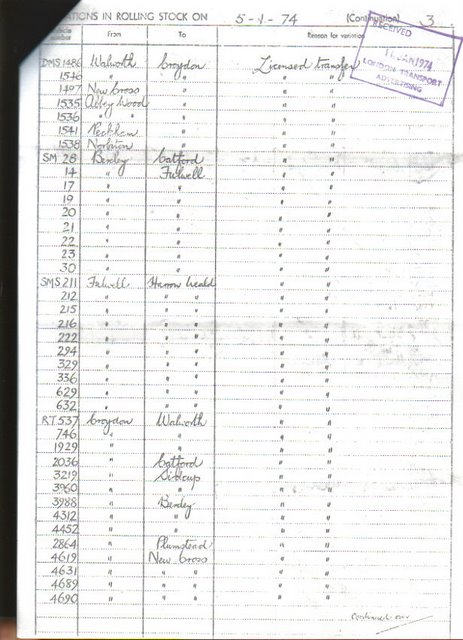 ATIONS IN ROLLING STOCK ON 5-1-74 (Continuation) 3
RECEIVED
JAN 1974
LONDON TRANSPORT
ADVERTISING
number From To Reason for variation
DMS 1486 Walworth Croydon Licensed transfer
1546 " " " "
1497 New Cross " " "
1535 Abbey Wood " " "
1536 " " " "
1541 Peckham " " "
1538 Norbiton " " "
SM 28 Bexley Catford " "
14 " Fulwell " "
17 " " " "
19 " " " "
20 " " " "
21 " " " "
22 " " " "
23 " " " "
30 " " " "
SMS 211 Fulwell Harrow Weald " "
212 " " " " "
215 " " " " "
216 " " " " "
222 " " " " "
294 " " " " "
329 " " " " "
336 " " " " "
629 " " " " "
632 " " " " "
RT 537 Croydon Walworth " "
746 " " " "
1929 " " " "
2036 " Catford " "
3219 " Sidcup " "
3960 " " " "
3988 " Bexley " "
4312 " " " "
4452 " " " "
2864 " Plumstead " "
4619 " New Cross " "
4631 " " " " "
4689 " " " " "
4690 " " " " "
Continued over